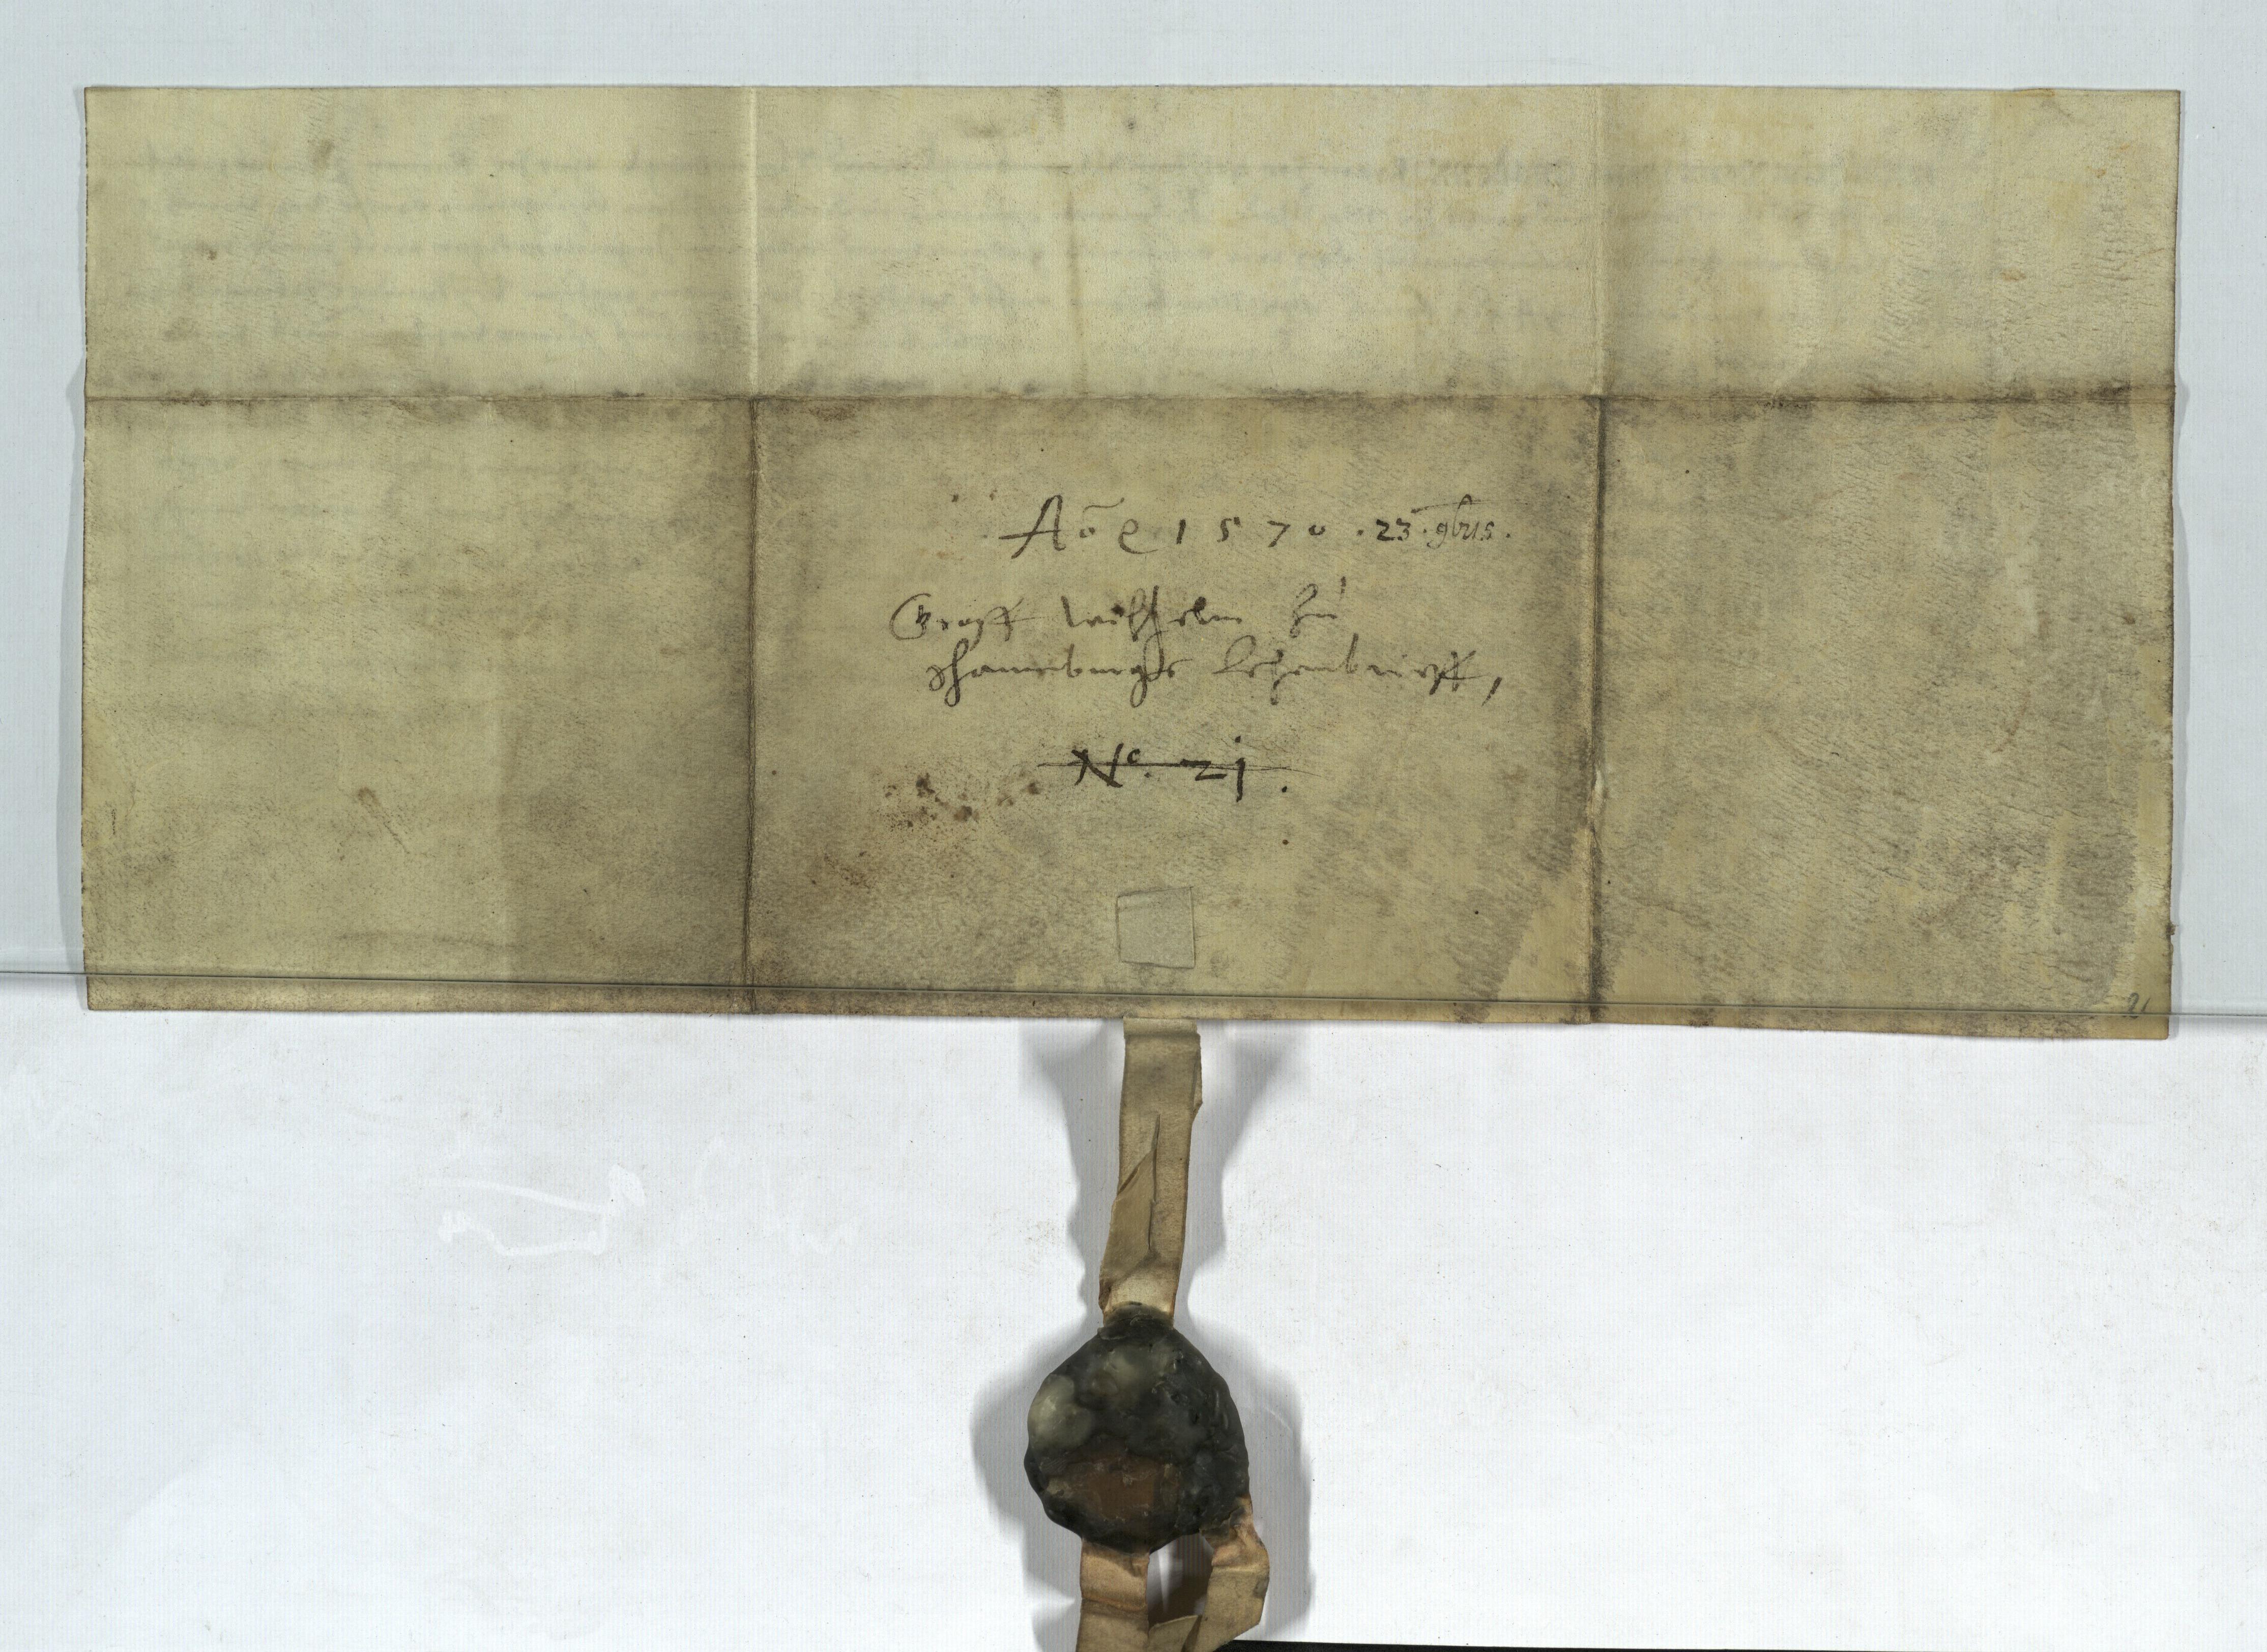 Aõ ꝛc 1570 . 23 . 9bris .
Graff Wilhelm zu
Schauwburgs Lehenbrieff,
No. 21.
21